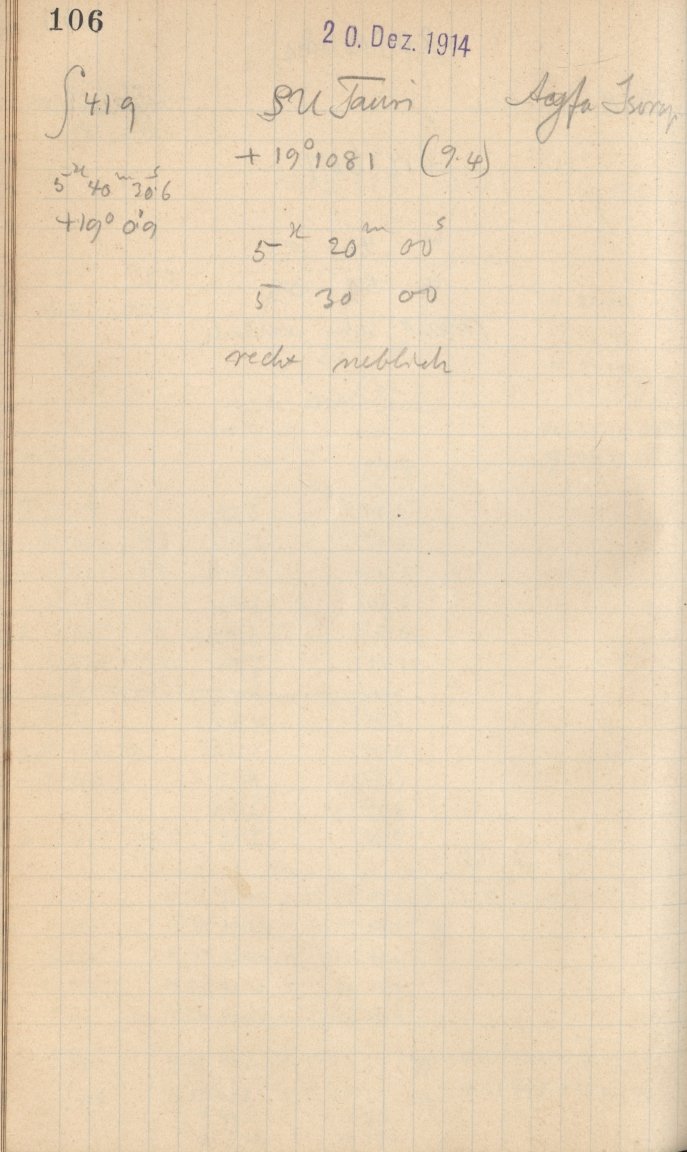 106
20. Dez. 1914
∫ 419 SU Tauri Agfa Isorap
+ 19° 1081 (9.4)
5ʰ 40ᵐ 30ˢ.6
+19° 0'.9
5ʰ 20ᵐ 00ˢ
5 30 00
recht neblich